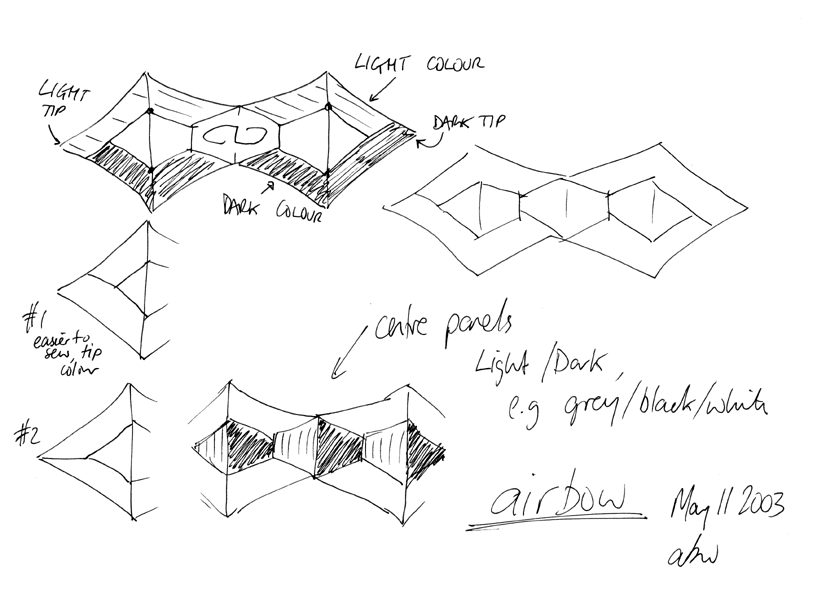 LIGHT COLOUR
LIGHT
TIP
DARK TIP
DARK COLOUR
#1
easier to
sew, tip
colour
centre panels
Light / Dark,
e.g grey/black/white
#2
airbow
May 11 2003